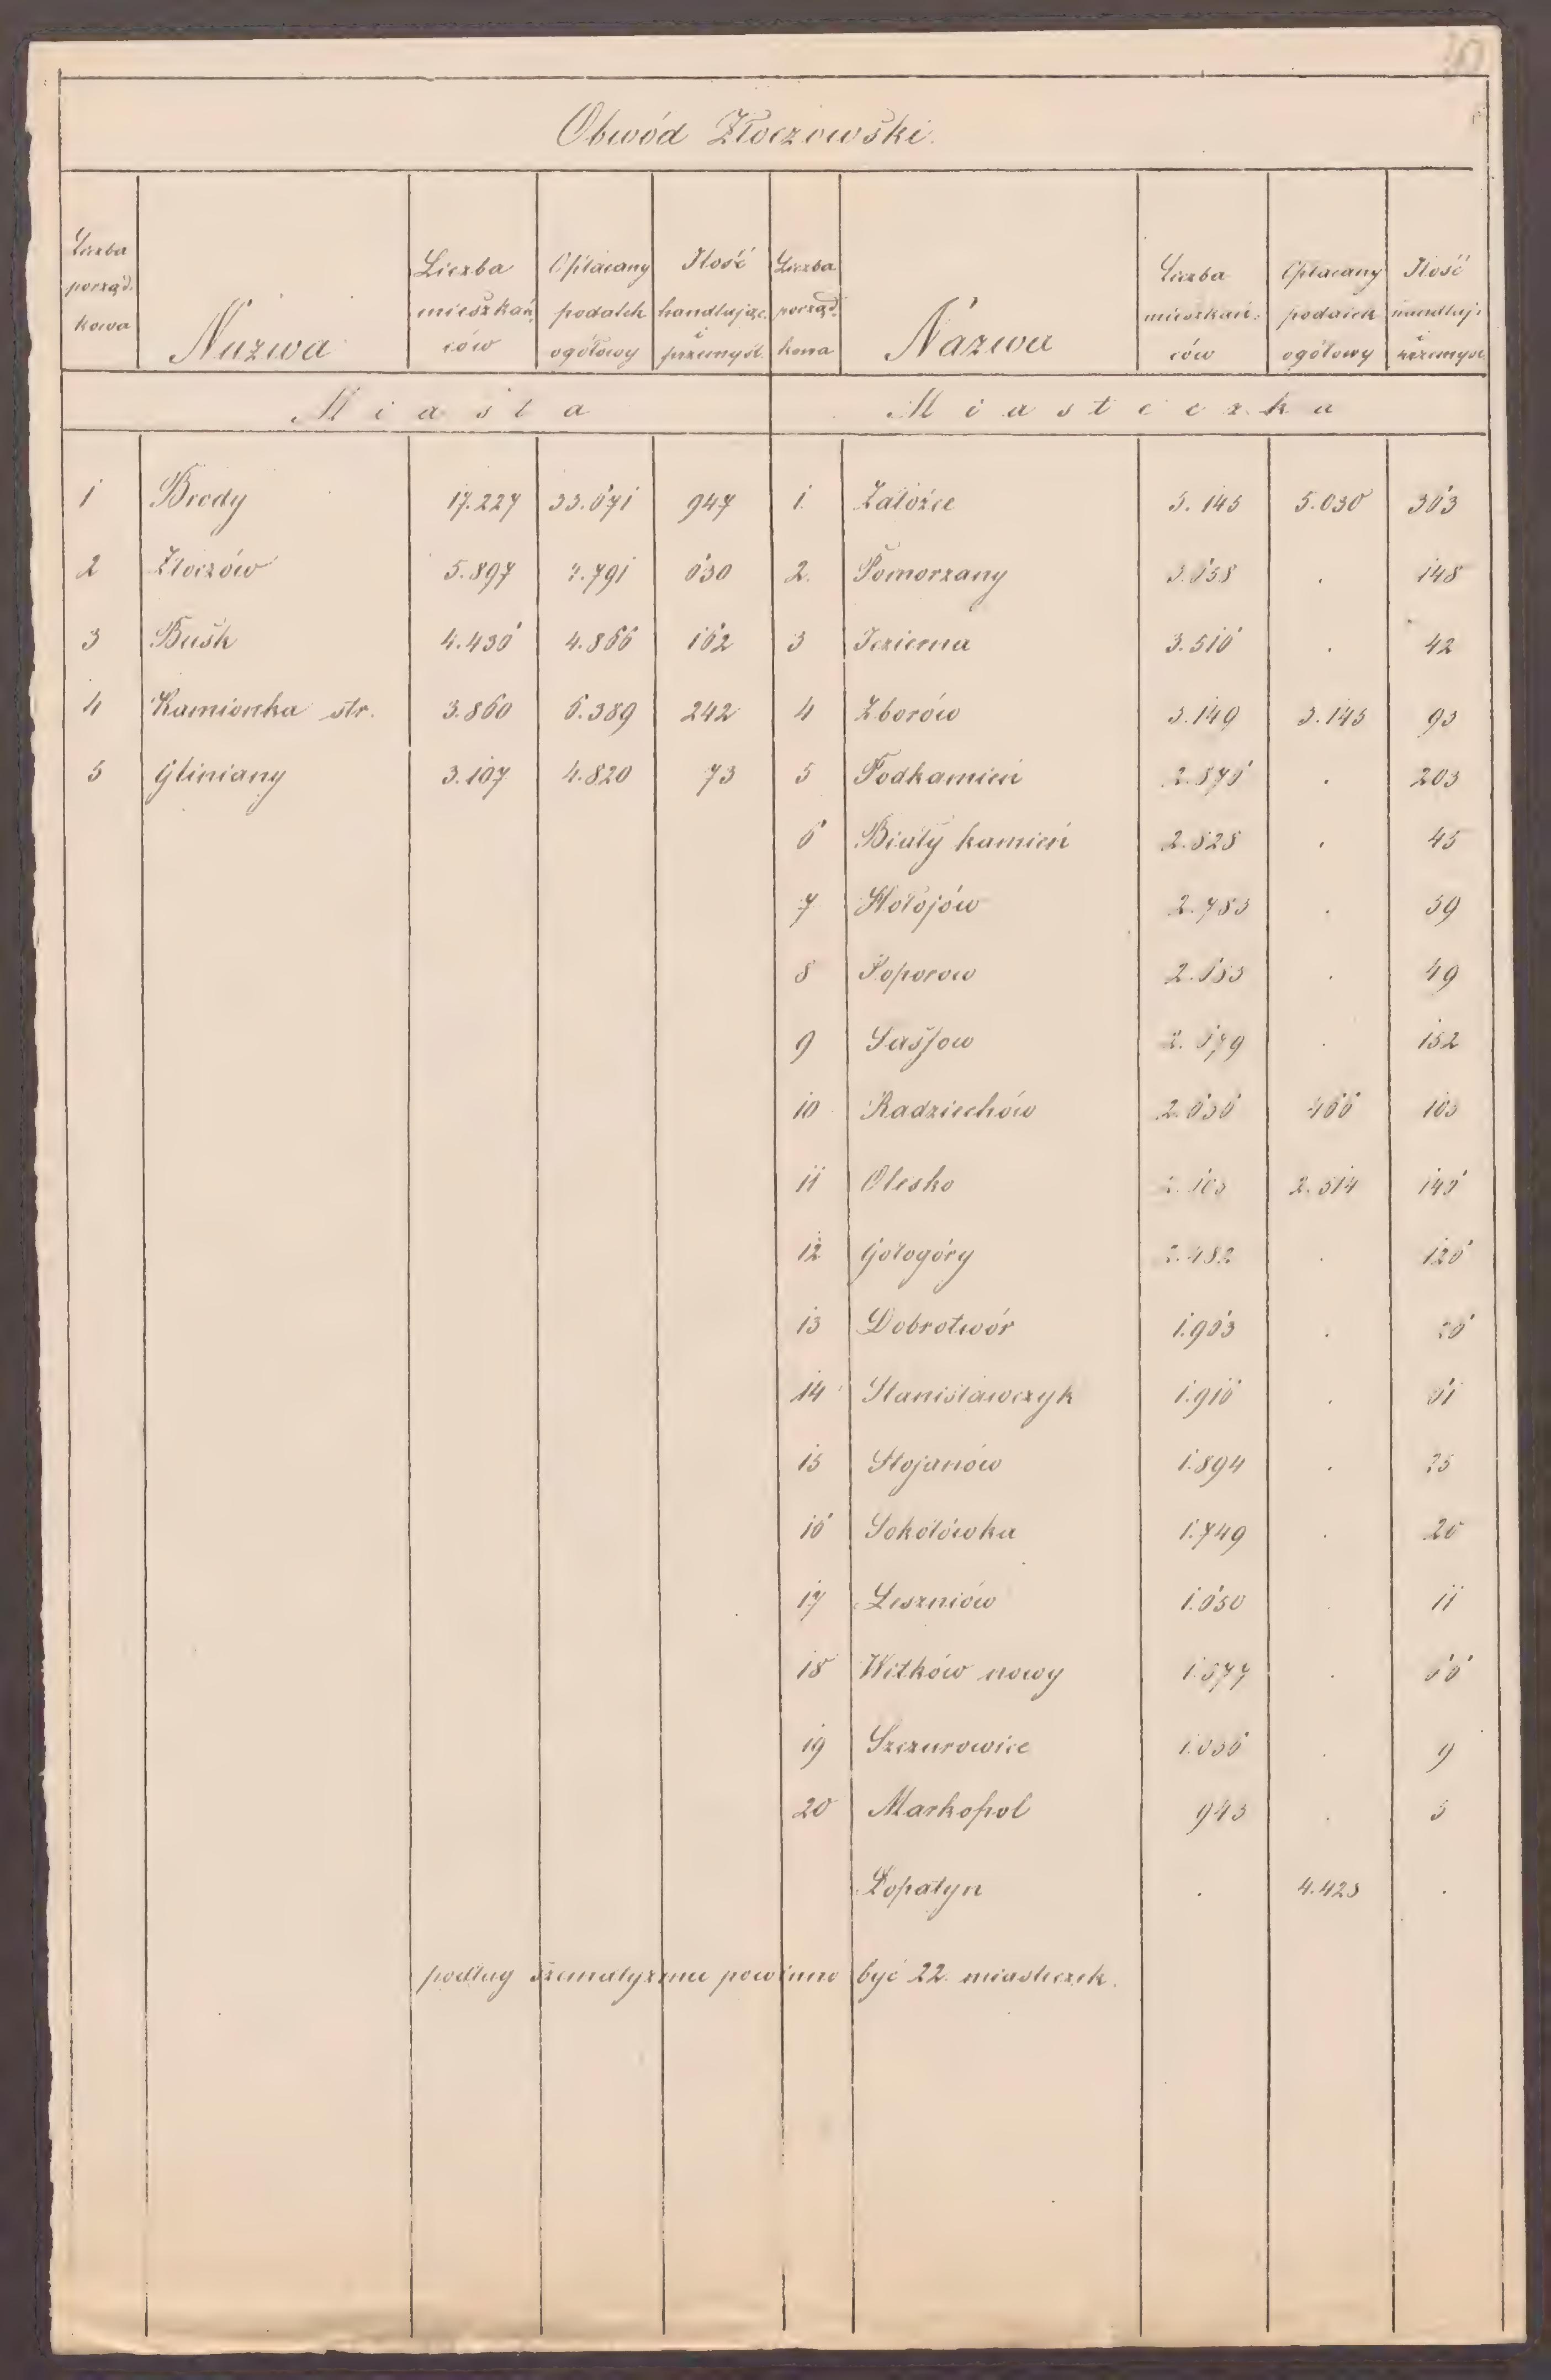 Obwód Złoczowski.
Liczba porząd. kowa | Nazwa | Liczba mieszkań. ców | Opłacany podatek ogółowy | Ilość handlując. i przemysł. | Liczba porząd. kowa | Nazwa | Liczba mieszkań. ców | Opłacany podatek ogółowy | Ilość handluj. i przemysł.
Miasta | Miasteczka
1 Brody 17.227 33.671 947 1. Załoźce 5.145 5.030 363
2 Złoczów 5.897 7.791 630 2. Pomorzany 148
3 Busk 4.436 4.866 162 3 Jezierna 3.516 . 42
4 Kamionka str. 3.860 6.389 242 4 Zborów 3.149 3.145 93
5 Gliniany 3.107 4.820 73 5 Podkamień 2.876 . 203
6 Biały kamień 2.828 . 45
7 Hołojów 2.783 . 39
8 Toporow . 49
9 Sassow . 152
10 Radziechów 2.636 466 103
11 Olesko 2.514 146
12 Gołogóry 2.482 . 126
13 Dobrotwór 1.963 .
14 Stanisławczyk 1.916 . 61
15 Stojanów 1.894 .
16 Sokołówka 1.749 . 20
17 Leszniów 1.650 . 11
18 Witków nowy 1.577 . 66
19 Szczurowice . 9
20 Markopol 943 .
Łopatyn . 4.428 .
podług szematyzmu powinno być 22 miasteczek.